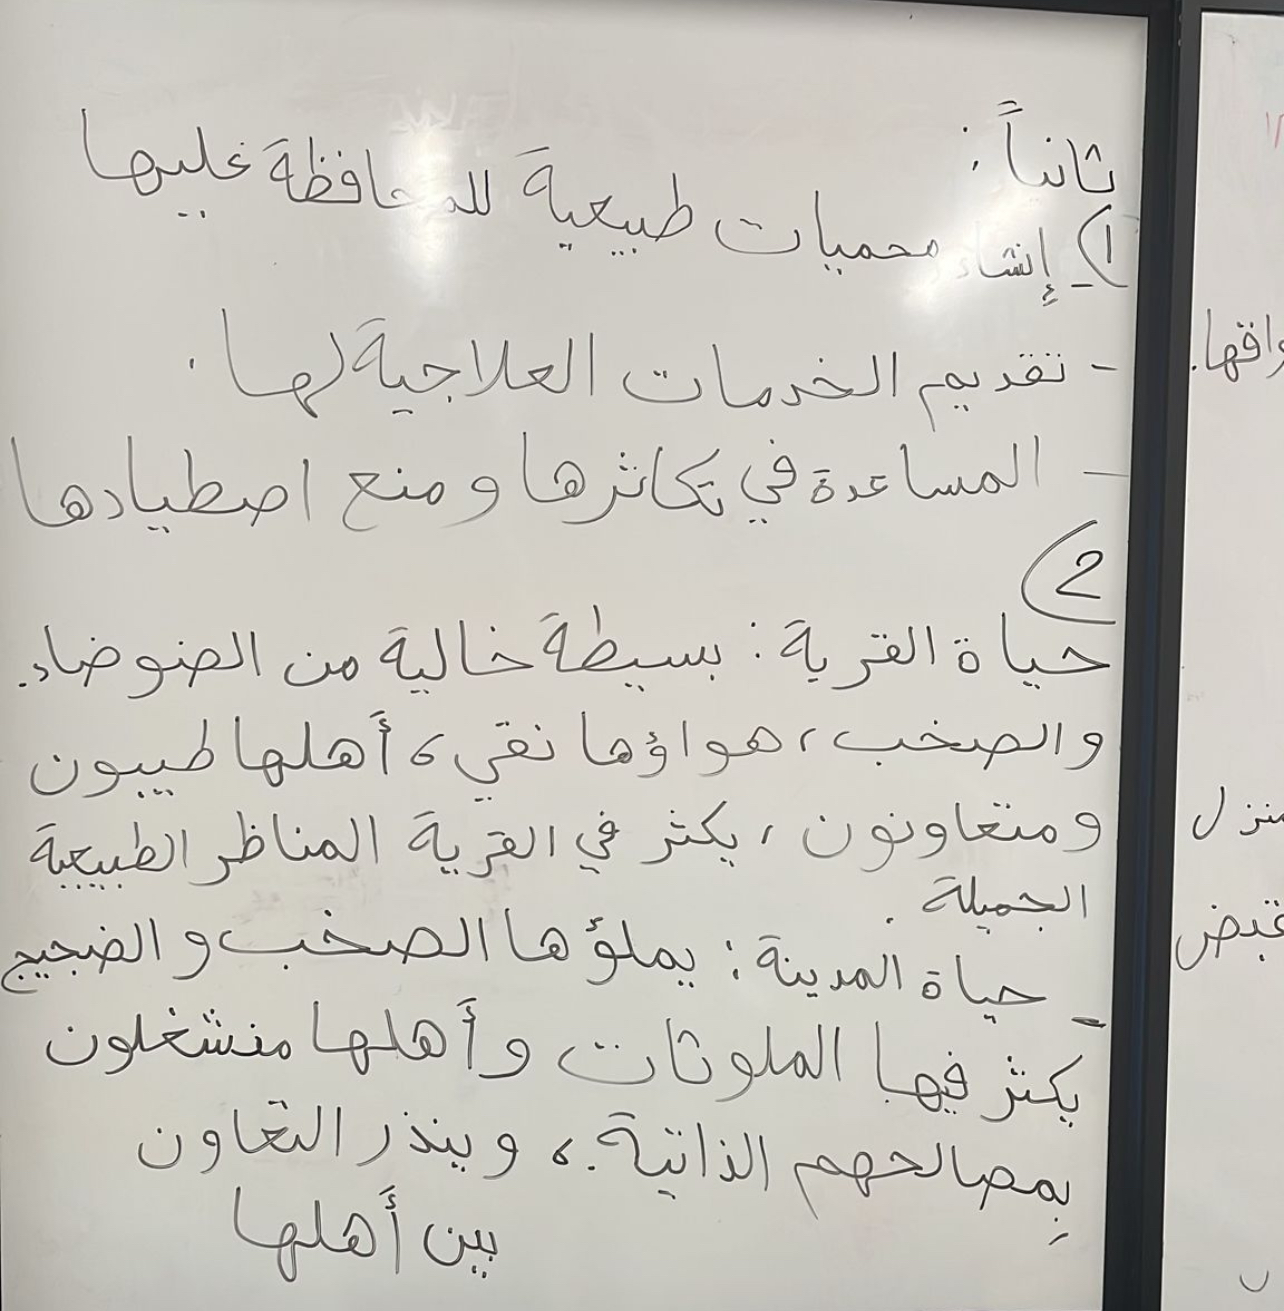 ثانياً :
1) إنشاء محميات طبيعية للمحافظة عليها
- تقديم الخدمات العلاجية لها .
- المساعدة في تكاثرها ومنع اصطيادها
2)
حياة القرية : بسيطة خالية من الضوضاء.
والصخب ، هواؤها نقي ، أهلها طيبون
ومتعاونون ، يكثر في القرية المناظر الطبيعية
الجميلة .
- حياة المدينة : يملؤها الصخب والضجيج
يكثر فيها الملوثات وأهلها منشغلون
بِمصالحهم الذاتية . ، ويندر التعاون
بين أهلها
منزل